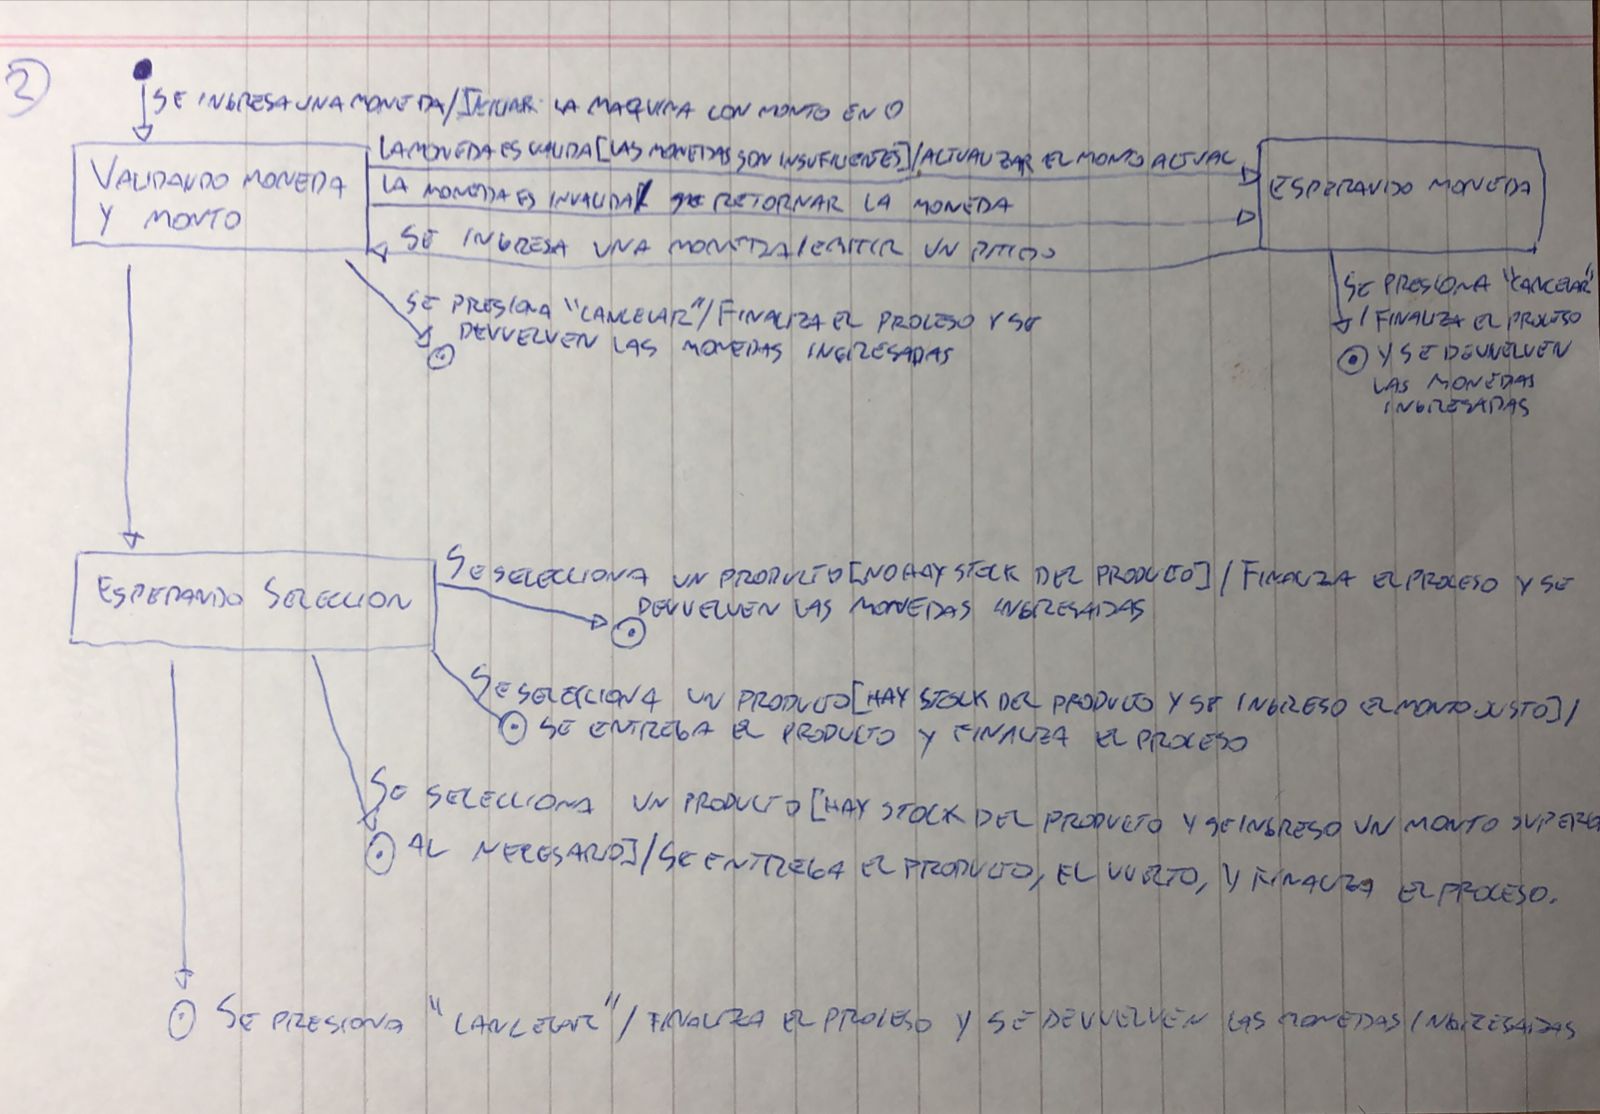 2)
SE INGRESA UNA MONEDA/INICIAR LA MAQUINA CON MONTO EN 0
LA MONEDA ES VALIDA[LAS MONEDAS SON INSUFICIENTES]/ACTUALIZAR EL MONTO ACTUAL
VALIDANDO MONEDA
Y MONTO
LA MONEDA ES INVALIDA/ RETORNAR LA MONEDA
ESPERANDO MONEDA
SE INGRESA UNA MONEDA/EMITIR UN PITIDO
SE PRESIONA "CANCELAR"/FINALIZA EL PROCESO Y SE
DEVUELVEN LAS MONEDAS INGRESADAS
SE PRESIONA "CANCELAR"
/FINALIZA EL PROCESO
Y SE DEVUELVEN
LAS MONEDAS
INGRESADAS
ESPERANDO SELECCION
SE SELECCIONA UN PRODUCTO[NO HAY STOCK DEL PRODUCTO]/FINALIZA EL PROCESO Y SE
DEVUELVEN LAS MONEDAS INGRESADAS
SE SELECCIONA UN PRODUCTO[HAY STOCK DEL PRODUCTO Y SE INGRESO EL MONTO JUSTO]/
SE ENTREGA EL PRODUCTO Y FINALIZA EL PROCESO
SE SELECCIONA UN PRODUCTO[HAY STOCK DEL PRODUCTO Y SE INGRESO UN MONTO
AL NECESARIO]/SE ENTREGA EL PRODUCTO, EL VUELTO, Y FINALIZA EL PROCESO.
SE PRESIONA "CANCELAR"/FINALIZA EL PROCESO Y SE DEVUELVEN LAS MONEDAS INGRESADAS